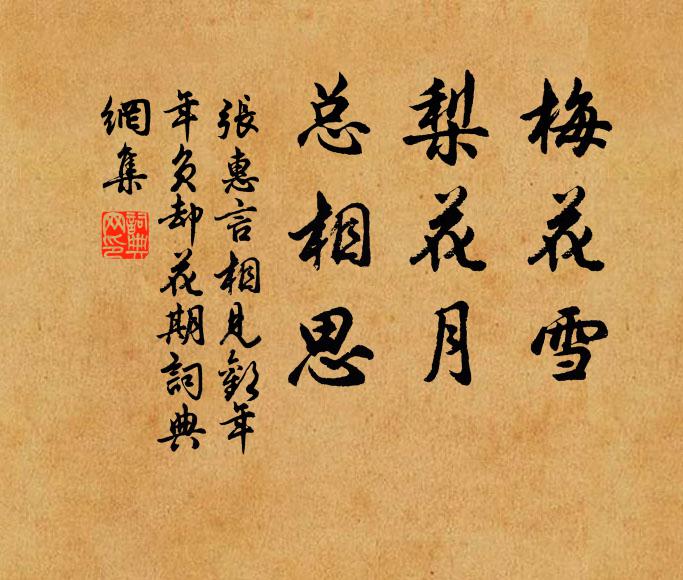 梅花雪
梨花月
总相思
張惠言相見歡年
年負却花期詞典
網集
詞典
网印